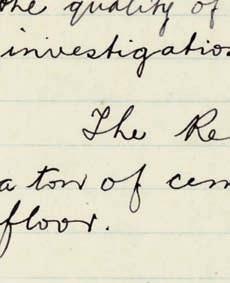 the quality of
investigation
The Re
a ton of cem
floor.